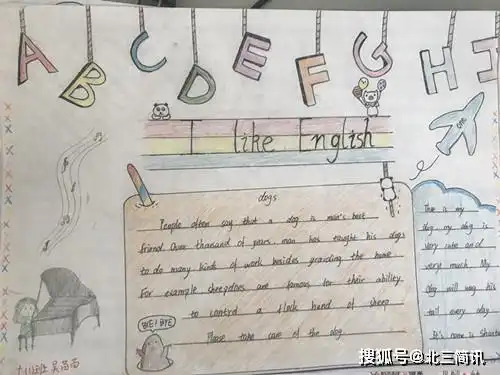 A B C D E F G H I
I like English
dogs
People often say that a dog is man's best
friend. Over thousand of years, man has taught his dogs
to do many kinds of work besides granding the home
For example sheepdons are famous for their ability
to control a flock hand of sheep
Please take care of the dog
BYE! BYE
This is my
dog. my dog is
very cute and
very much. My
dog will wag his
tail every day
It's name is
吴苗苗
搜狐号@北三简讯